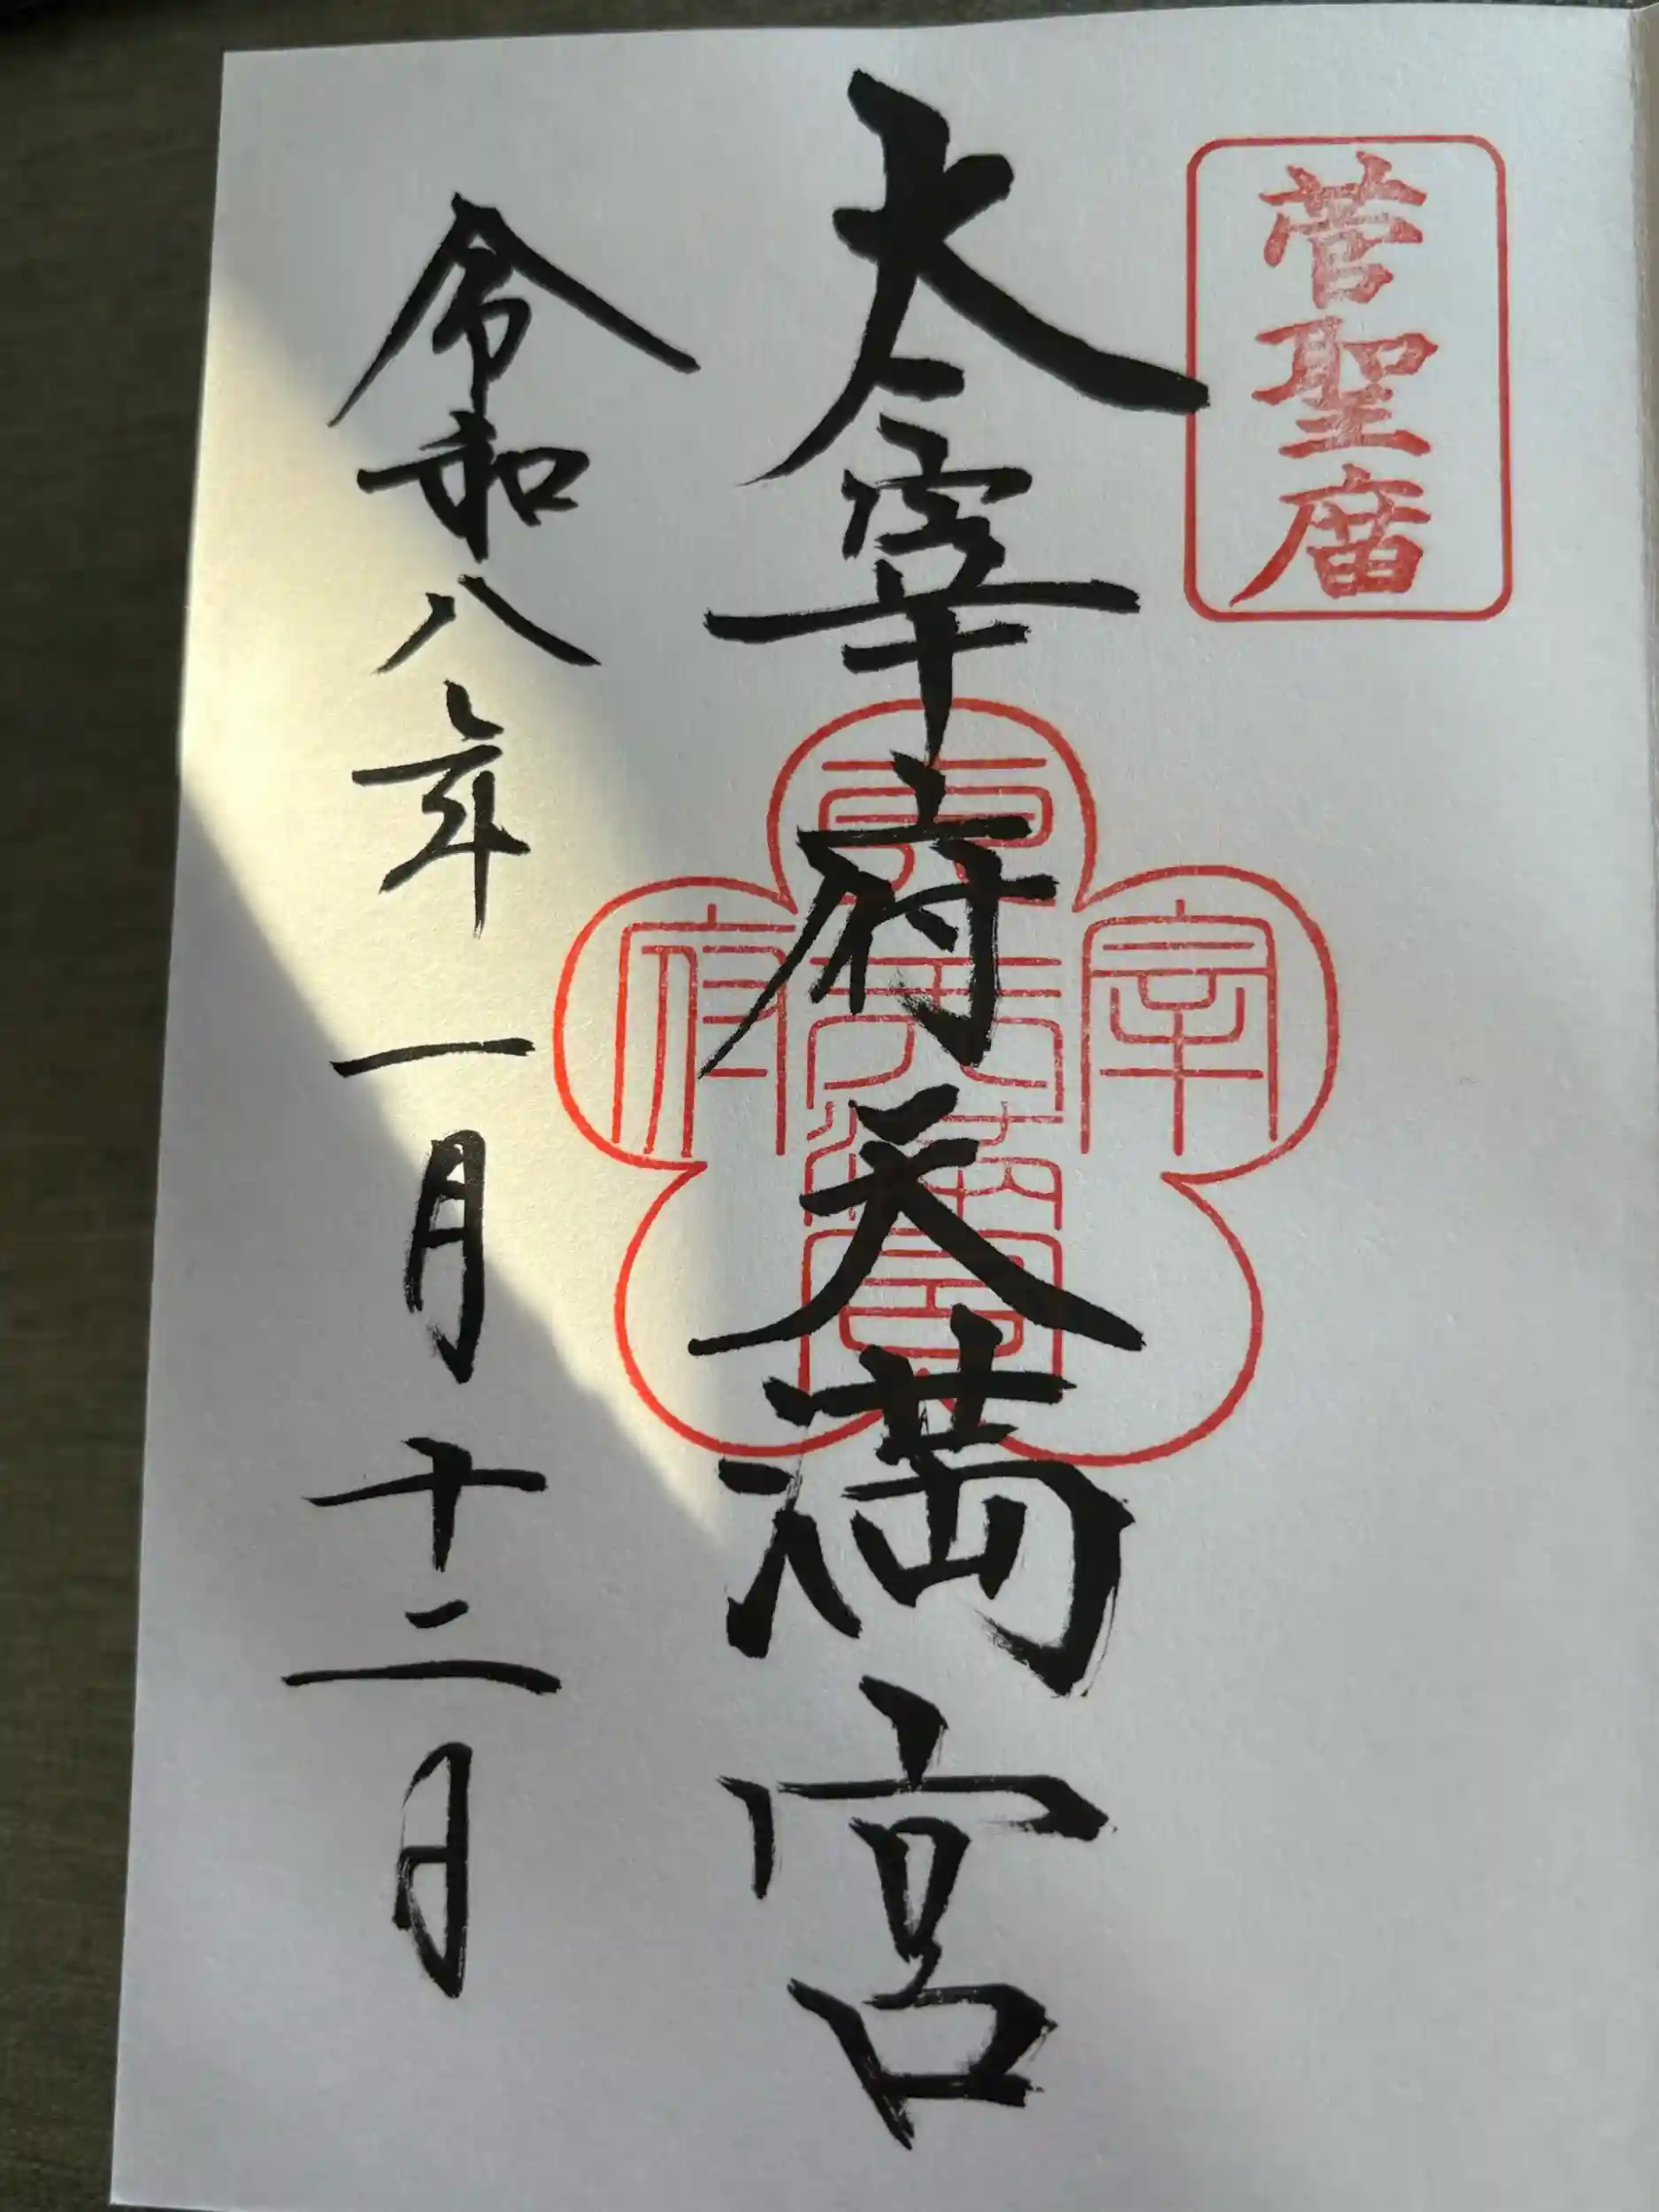 菅聖廟
太宰府天満宮
宰
府
令和八年一月十二日